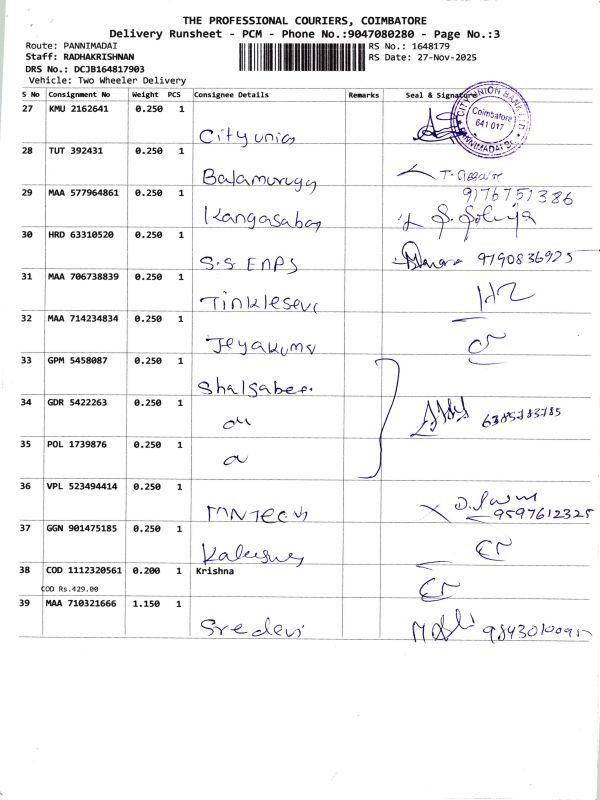 THE PROFESSIONAL COURIERS, COIMBATORE
Delivery Runsheet - PCM - Phone No.:9047080280 - Page No.:3
Route: PANNIMADAI
RS No.: 1648179
Staff: RADHAKRISHNAN
RS Date: 27-Nov-2025
DRS No.: DCJB164817903
Vehicle: Two Wheeler Delivery
S No Consignment No Weight PCS Consignee Details Remarks Seal & Signature
27 KMU 2162641 0.250 1
City union
CITY UNION BANK LTD
Coimbatore
641 017
PANNIMADAI
28 TUT 392431 0.250 1
Balamuruga
9176751386
29 MAA 577964861 0.250 1
Kangasaba
30 HRD 63310520 0.250 1
S.S ENPS
9790836925
31 MAA 706738839 0.250 1
Tinklesevi
32 MAA 714234834 0.250 1
Jeyakuma
33 GPM 5458087 0.250 1
Shalsabee.
34 GDR 5422263 0.250 1
35 POL 1739876 0.250 1
36 VPL 523494414 0.250 1
MNTECH
9597612325
37 GGN 901475185 0.250 1
38 COD 1112320561 0.200 1 Krishna
COD Rs.429.00
39 MAA 710321666 1.150 1
Sredevi